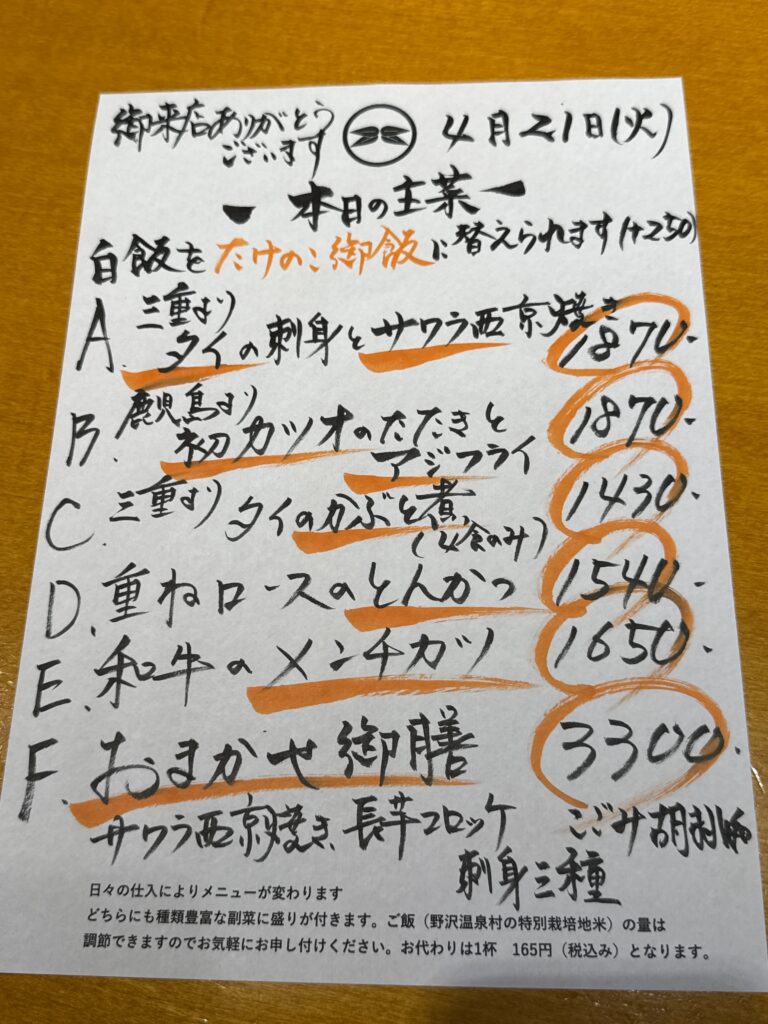 御来店ありがとう
ございます
4月21日(火)
本日の主菜
白飯をたけのこ御飯に替えられます(+250)
A. 三重より
タイの刺身とサワラ西京焼き 1870.-
B. 鹿児島より
初カツオのたたきと
アジフライ 1870.-
C. 三重より タイのかぶと煮
(4食のみ) 1430.-
D. 重ねロースのとんかつ 1540.-
E. 和牛のメンチカツ 1650.-
F. おまかせ御膳 3300.
サワラ西京焼き、長芋コロッケ こごみ胡麻
刺身三種
日々の仕入によりメニューが変わります
どちらにも種類豊富な副菜に盛りが付きます。ご飯(野沢温泉村の特別栽培地米)の量は
調節できますのでお気軽にお申し付けください。お代わりは1杯 165円(税込み)となります。